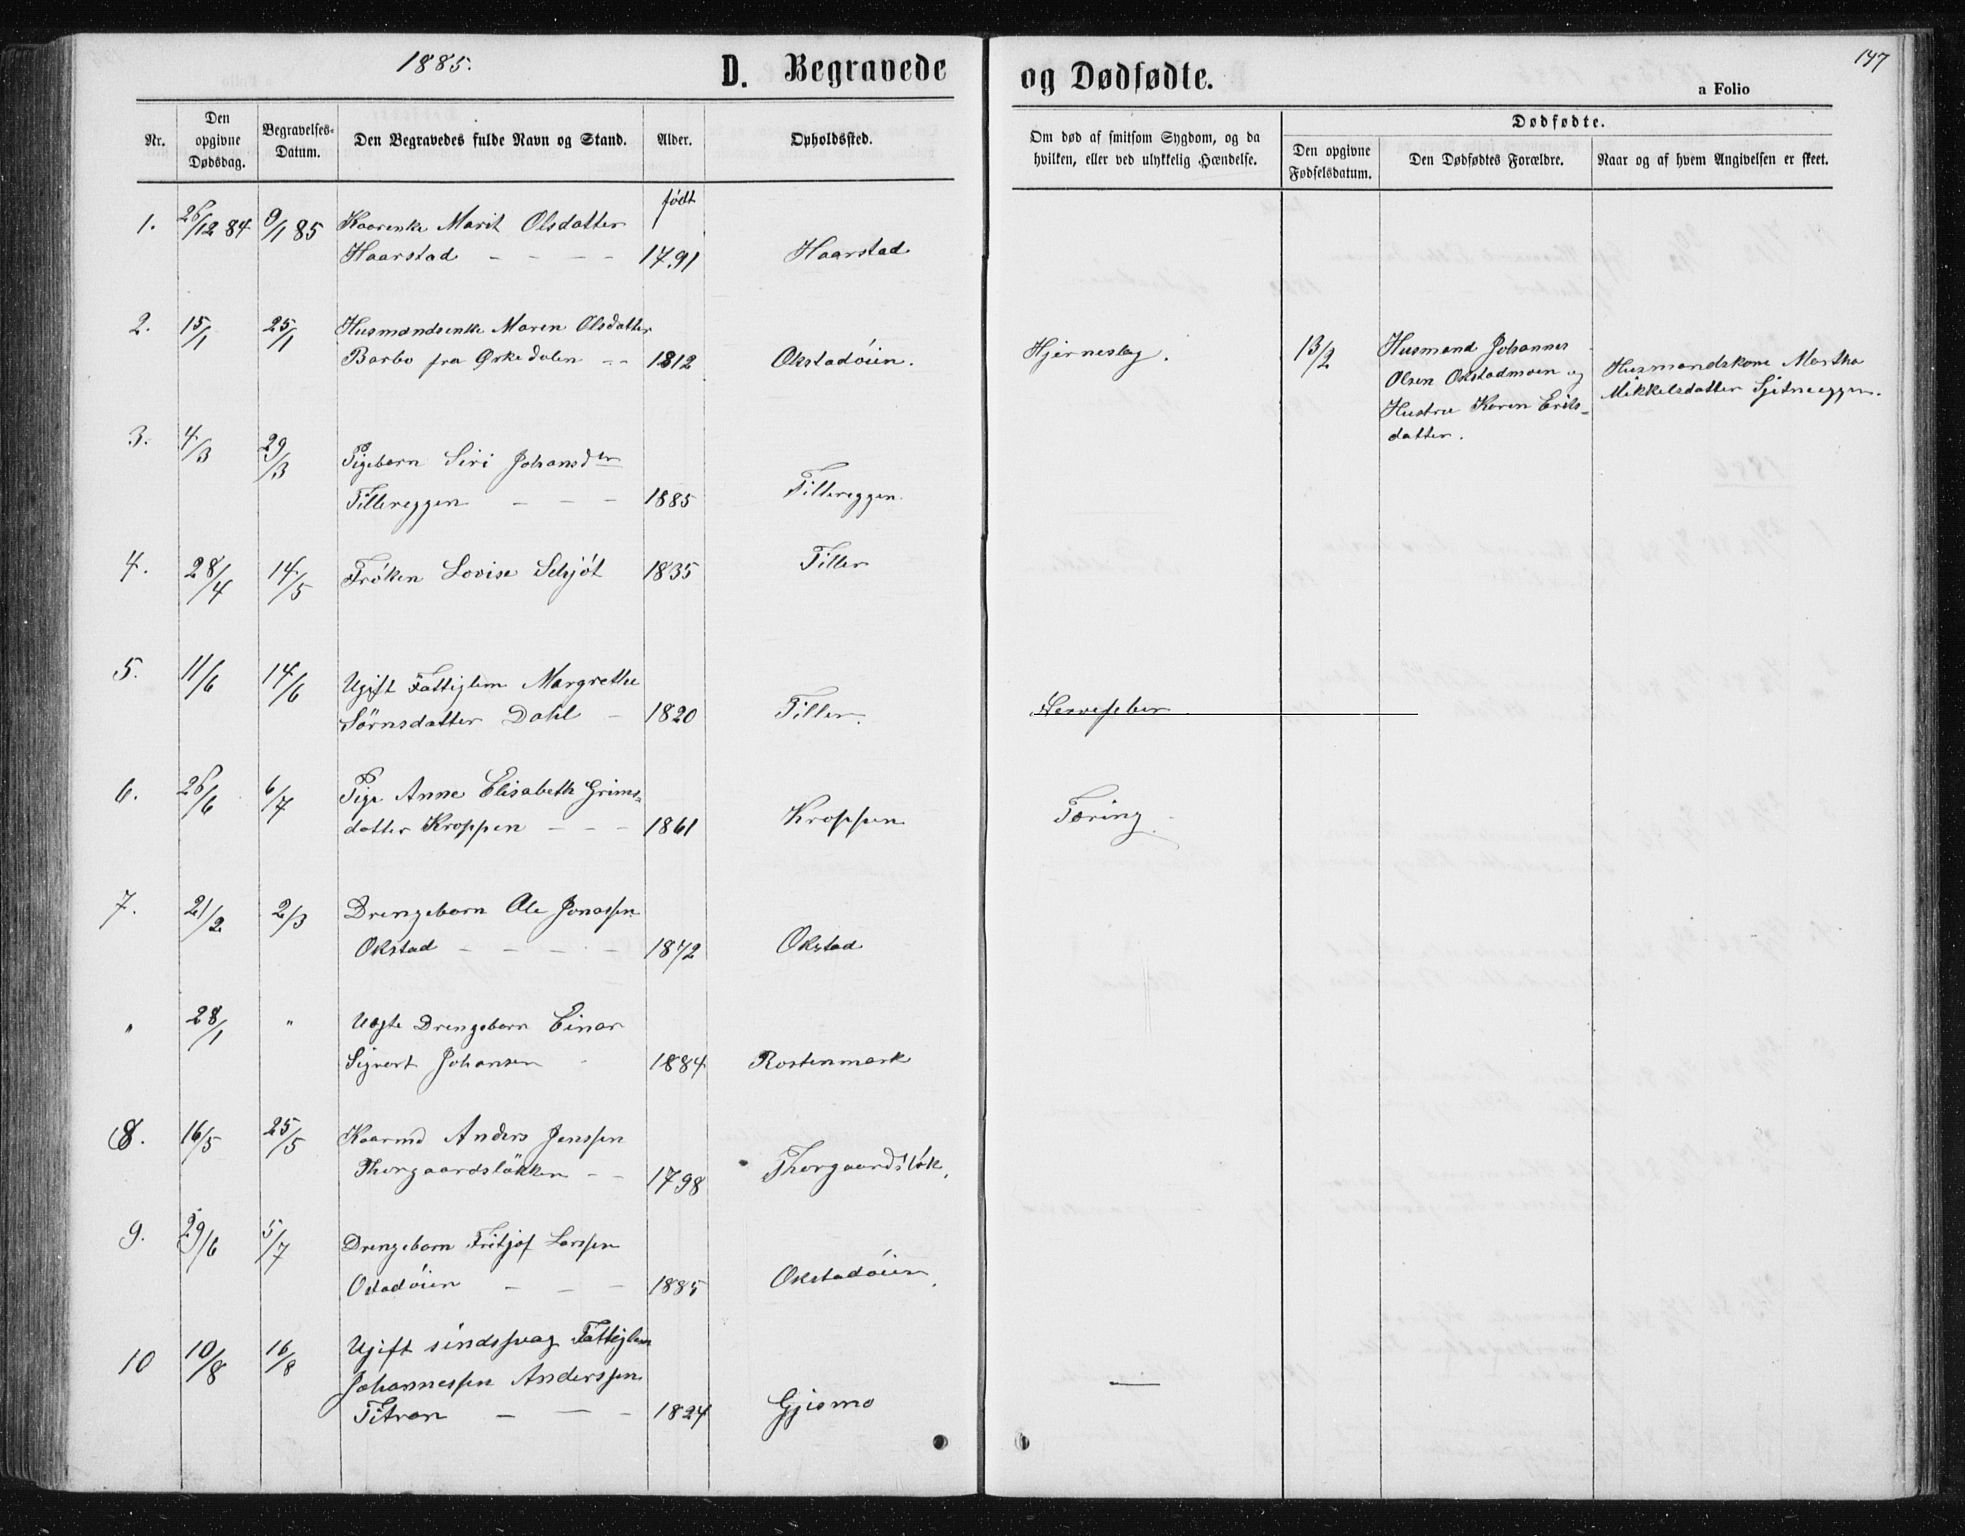 1885.
D. Begravede
og Dødfødte.
147
a Folio
Nr.
Den opgivne Dødsdag.
Begravelses-Datum.
Den Begravedes fulde Navn og Stand.
Alder.
Opholdssted.
Om død af smitsom Sygdom, og da hvilken, eller ved ulykkelig Hændelse.
Dødfødte.
Den opgivne Fødselsdatum.
Den Dødfødtes Forældre.
Naar og af hvem Angivelsen er skeet.
født
1. 26/12 84 9/1 85 Kaarenke Marit Olsdatter
Haarstad - - - - 1791 Haarstad
2. 15/1 25/1 Husmandsenke Maren Olsdatter
Barbo fra Ørkedalen - - 1812 Okstadøien.
Hjerneslag.
13/2
Husmand Johannes
Olsen Okstadmoen og
Hustru Karen Erils-
datter.
Husmandskone Martha
Mikkelsdatter Sjetneeggen.
3. 4/3 29/3 Pigebarn Siri Johansdtr
Tillereggen - - - 1885 Tillereggen.
4. 28/4 14/5 Frøken Lovise Schjøt 1835 Tiller
5. 11/6 14/6 Ugift Fattiglem Margrethe
Sörnsdatter Dahl - 1820 Tiller. Nervefeber.
6. 26/6 6/7 Pige Anne Elisabeth Grims-
datter Kroppen - - - 1861 Kroppen Tæring.
7. 21/2 2/3 Drengebarn Ole Jonassen
Okstad - - - - 1872 Okstad
" 28/1 " Uægte Drengebarn Einar
Sigvart Johansen - 1884 Rostenmark
8. 16/5 25/5 Kaarmd Anders Jenssen
Thorgaardsløkken - - 1798 Thorgaardsløk.
9. 29/6 5/7 Drengebarn Fritjof Larssen
Ostadøien - - - 1885 Okstadøien.
10 10/8 16/8 Ugift sindssvag Fattiglem
Johannessen Anderssen
Titran - - - 1824 Gjismo —